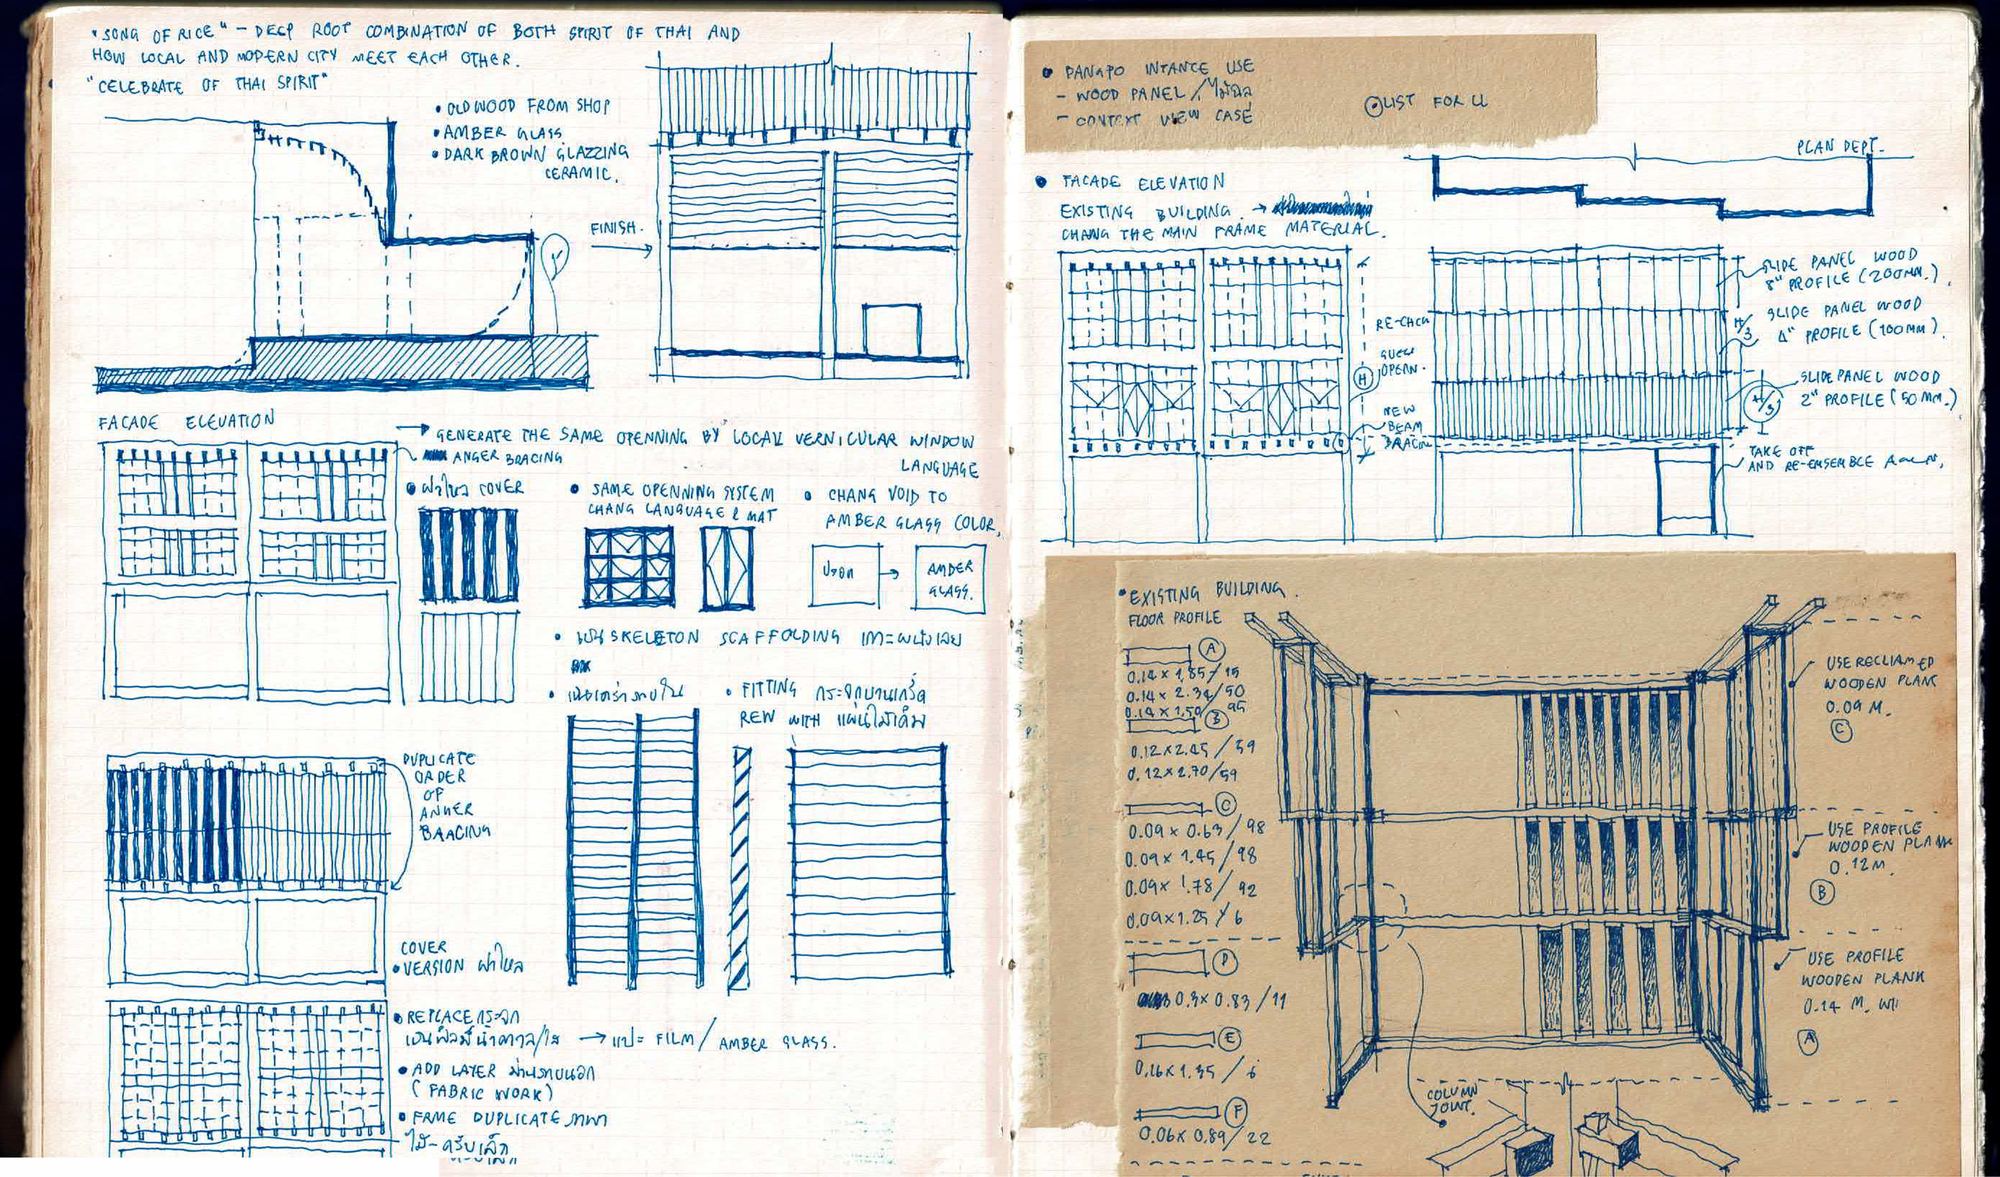 "SONG OF RICE" – DEEP ROOT COMBINATION OF BOTH SPIRIT OF THAI AND
HOW LOCAL AND MODERN CITY MEET EACH OTHER.
"CELEBRATE OF THAI SPIRIT"
• OLD WOOD FROM SHOP
• AMBER GLASS
• DARK BROWN GLAZZING
CERAMIC.
FINISH.
FACADE ELEVATION
→ GENERATE THE SAME OPENNING BY LOCALL VERNICULAR WINDOW
LANGUAGE
ANGER BRACING
• ฝาไหล COVER
• SAME OPENNING SYSTEM
CHANG LANGUAGE & MAT
• CHANG VOID TO
AMBER GLASS COLOR,
AMBER
GLASS.
• SKELETON SCAFFOLDING
• FITTING กระจกบานเกร็ด
REW WITH แผ่นไม้เดิม
DUPLICATE
ORDER
OF
ANGER
BRACING
COVER
• VERSION ฝาไหล
• REPLACE กระจก
เป็นฟิล์มสีน้ำตาล/ใส → แปะ FILM / AMBER GLASS.
• ADD LAYER ม่านภายนอก
( FABRIC WORK)
• FRAME DUPLICATE
• PANGPO INTANCE USE
– WOOD PANEL /
– CONTEXT VIEW CASE
LIST FOR
PLAN DEPT.
• FACADE ELEVATION
EXISTING BUILDING. →
CHANG THE MAIN FRAME MATERIAL.
H
OPERN.
NEW
BEAM
BRACING
SLIDE PANEL WOOD
8" PROFILE (200MM.)
SLIDE PANEL WOOD
4" PROFILE (100MM)
H/3
SLIDE PANEL WOOD
2" PROFILE (50 MM.)
H/3
TAKE OFF
AND RE-EMSEMBLE
• EXISTING BUILDING.
FLOOR PROFILE
A
0.14 × 1.85/15
0.14 × 2.34/50
0.14 × 1.50/95
B
0.12×2.45/59
0.12×2.70/59
C
0.09 × 0.63/98
0.09 × 1.45/98
0.09 × 1.78/92
0.09×1.25/6
D
0.3× 0.83/11
E
0.16×1.35/6
F
0.06× 0.89/22
USE RECLIAMED
WOODEN PLANK
0.09 M.
C
USE PROFILE
WOODEN PLANK
0.12M.
B
USE PROFILE
WOODEN PLANK
0.14 M.
A
COLUMN
JOINT.